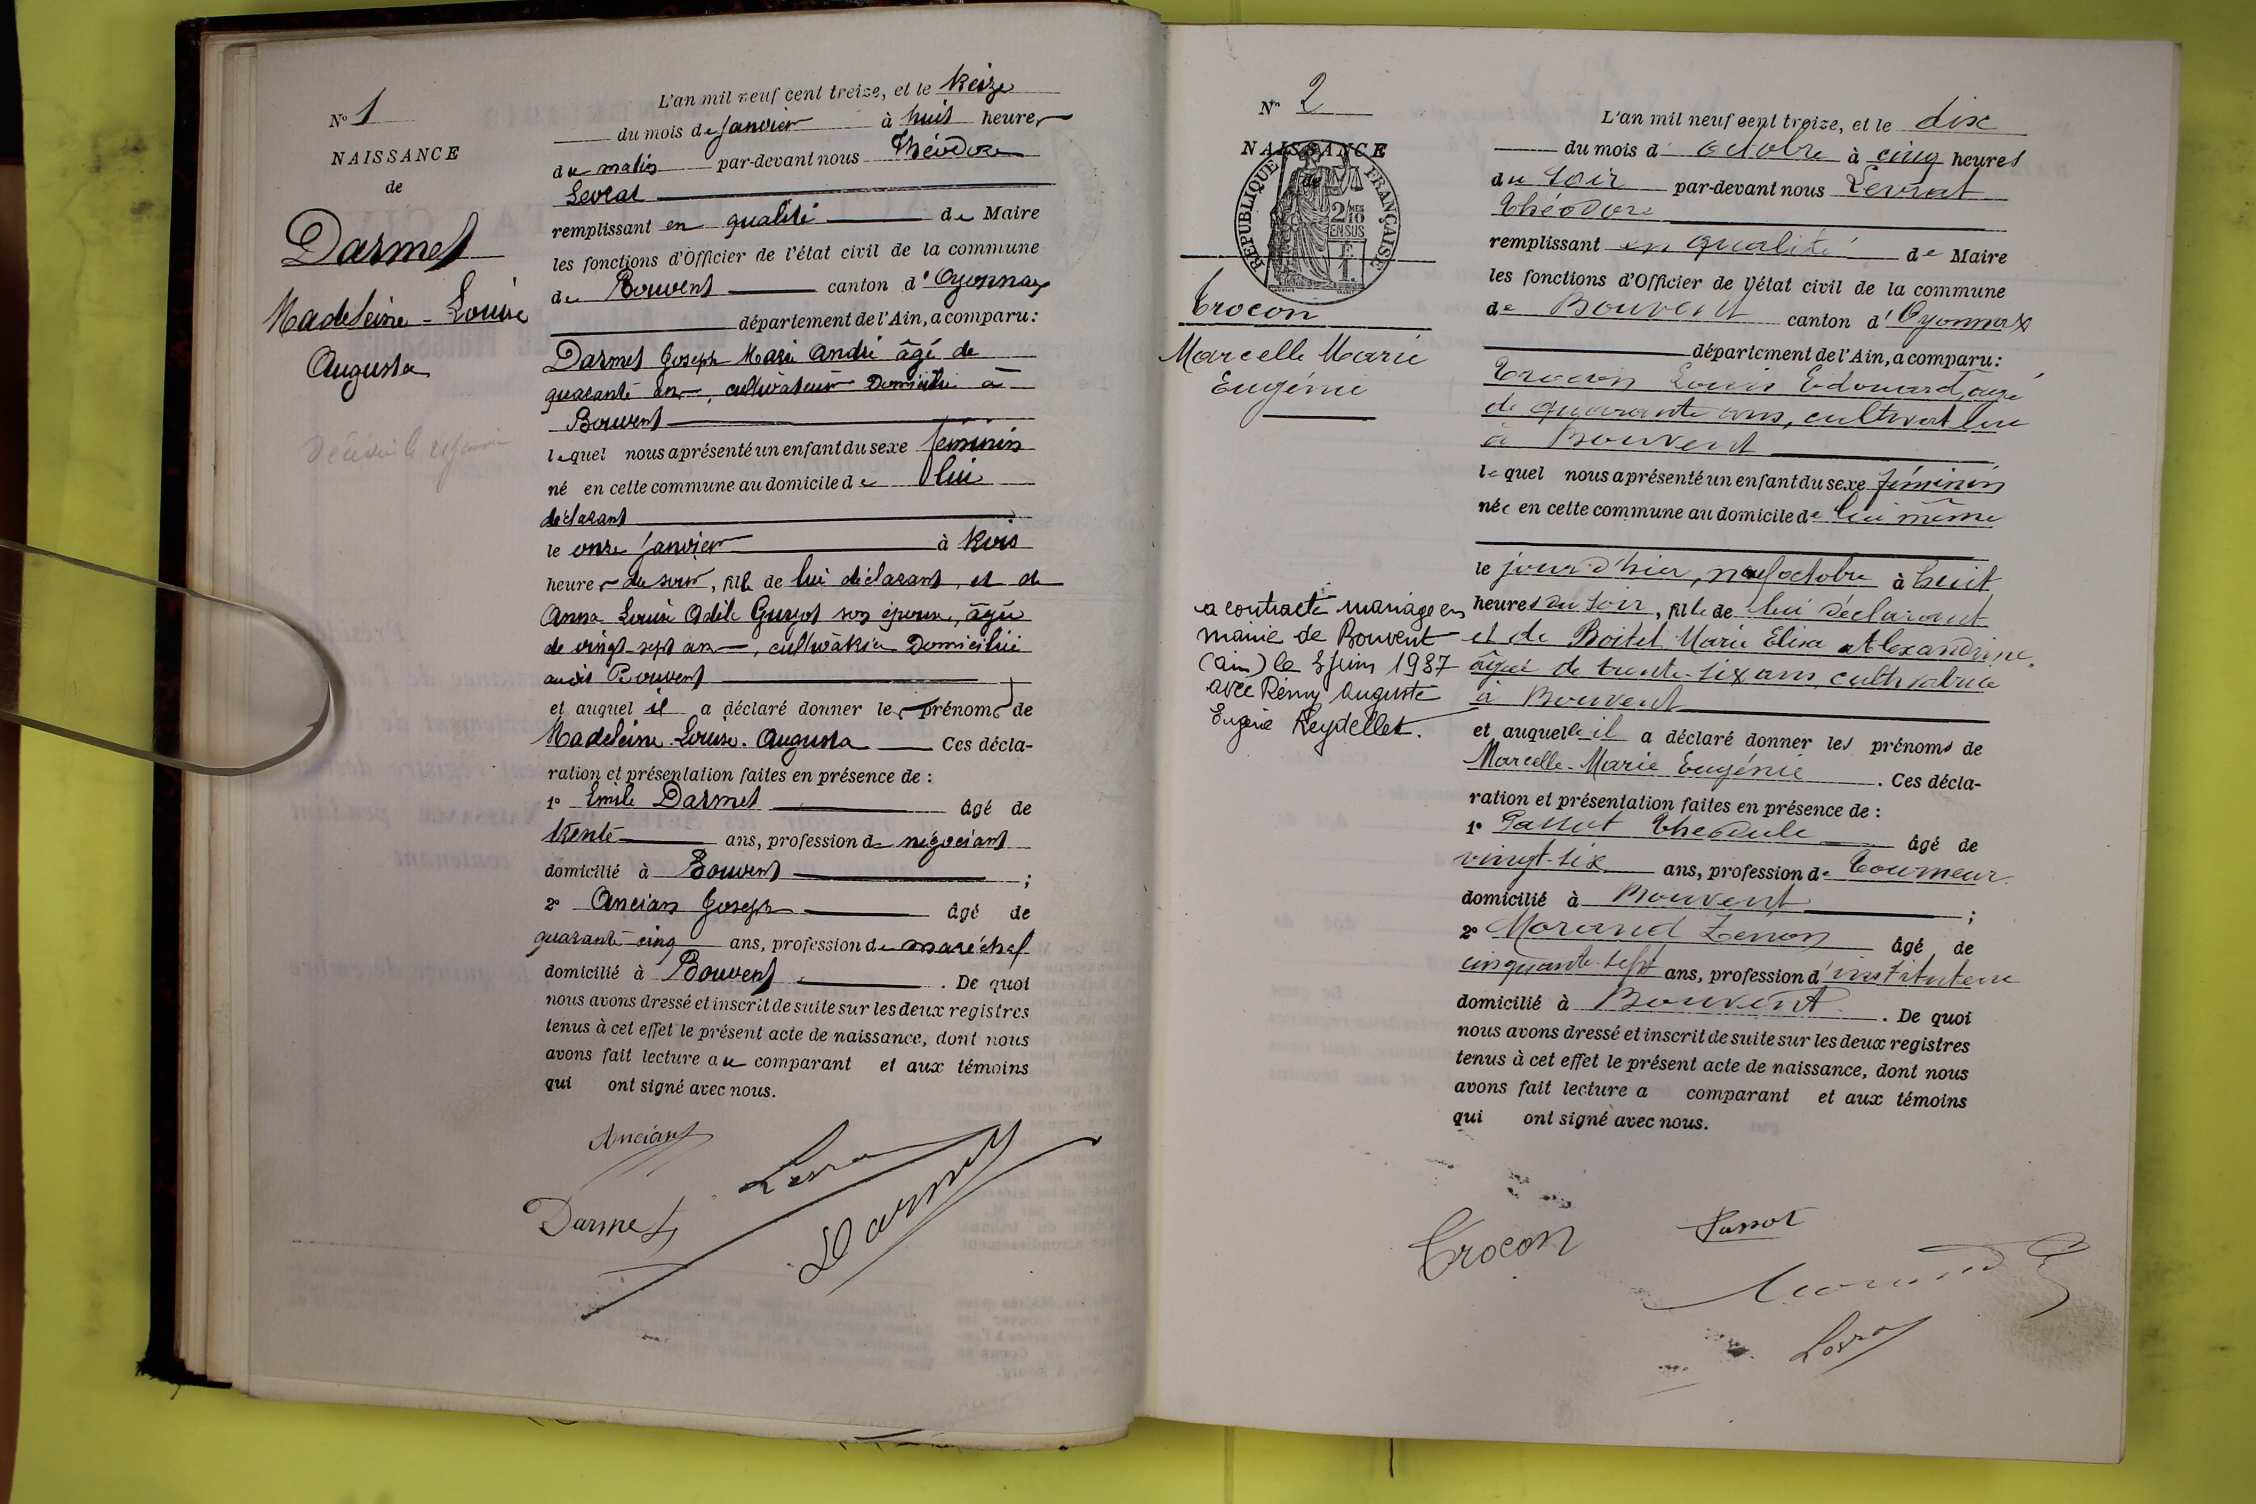 L'an mil neuf cent treize, et le treize
N° 1
du mois de janvier à huit heures
NAISSANCE
de
du matin par-devant nous Théodore
Levrat
Darmet
remplissant en qualité de Maire
les fonctions d'Officier de l'état civil de la commune
Madeleine-Louise
de Bouvent canton d'Oyonnax
département de l'Ain, a comparu:
Augusta
Darmet Joseph Marie André âgé de
quarante ans, cultivateur domicilié à
Bouvent
lequel nous a présenté un enfant du sexe féminin
né en cette commune au domicile de lui
déclarant
le onze janvier à trois
heures du soir, fille de lui déclarant, et de
Anna Louise Adèle Guyot son épouse, âgée
de vingt-sept ans, cultivatrice domiciliée
aussi Bouvent
et auquel il a déclaré donner les prénoms de
Madeleine. Louise. Augusta Ces décla-
ration et présentation faites en présence de :
1° Emile Darmet âgé de
trente ans, profession de négociant
domicilié à Bouvent ;
2° Ancian Joseph âgé de
quarante-cinq ans, profession de maréchal
domicilié à Bouvent . De quoi
nous avons dressé et inscrit de suite sur les deux registres
tenus à cet effet le présent acte de naissance, dont nous
avons fait lecture au comparant et aux témoins
qui ont signé avec nous.
Ancian
Levrat
Darmet
Darmet
N° 2
L'an mil neuf cent treize, et le dix
NAISSANCE
de
RÉPUBLIQUE FRANÇAISE
2/10
EN SUS
du mois d'octobre à cinq heures
du soir par-devant nous Levrat
Théodore
remplissant en qualité de Maire
les fonctions d'Officier de l'état civil de la commune
Crocon
de Bouvent canton d'Oyonnax
département de l'Ain, a comparu:
Marcelle Marie
Eugénie
Crocon Louis Edouard, âgé
de quarante ans, cultivateur
à Bouvent
lequel nous a présenté un enfant du sexe féminin
née en cette commune au domicile de lui même
le jour d'hier, neuf octobre à huit
heures du soir, fille de lui déclarant
et de Boitel Marie Elisa Alexandrine,
âgée de trente-six ans, cultivatrice
à Bouvent
a contracté mariage en
mairie de Bouvent
(Ain) le juin 1937
avec Rémy Auguste
Eugène Reydellet.
et auquelle il a déclaré donner les prénoms de
Marcelle-Marie Eugénie . Ces décla-
ration et présentation faites en présence de :
1° Passot Théodule âgé de
vingt-six ans, profession de tourneur
domicilié à Bouvent ;
2° Morand Zenon âgé de
cinquante-sept ans, profession d'instituteur
domicilié à Bouvent . De quoi
nous avons dressé et inscrit de suite sur les deux registres
tenus à cet effet le présent acte de naissance, dont nous
avons fait lecture a comparant et aux témoins
qui ont signé avec nous.
Crocon
Passot
Morand
Levrat